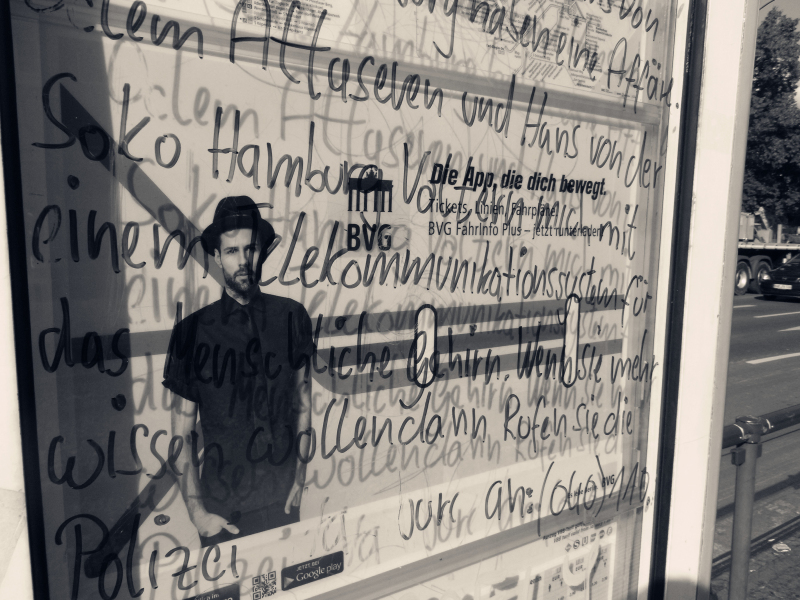 haben eine Affäre.
dem Attaseven und Hans von der
Soko Hamburg
mit
einem Telekommunikationssystem für
das Menschliche Gehirn. Wenn sie mehr
wissen wollen dann Rufen sie die
Polizei an: (040) 110
Die App, die dich bewegt.
Tickets, Linien, Fahrpläne.
BVG FahrInfo Plus – jetzt runterladen!
BVG
BVG
JETZT BEI
Google play